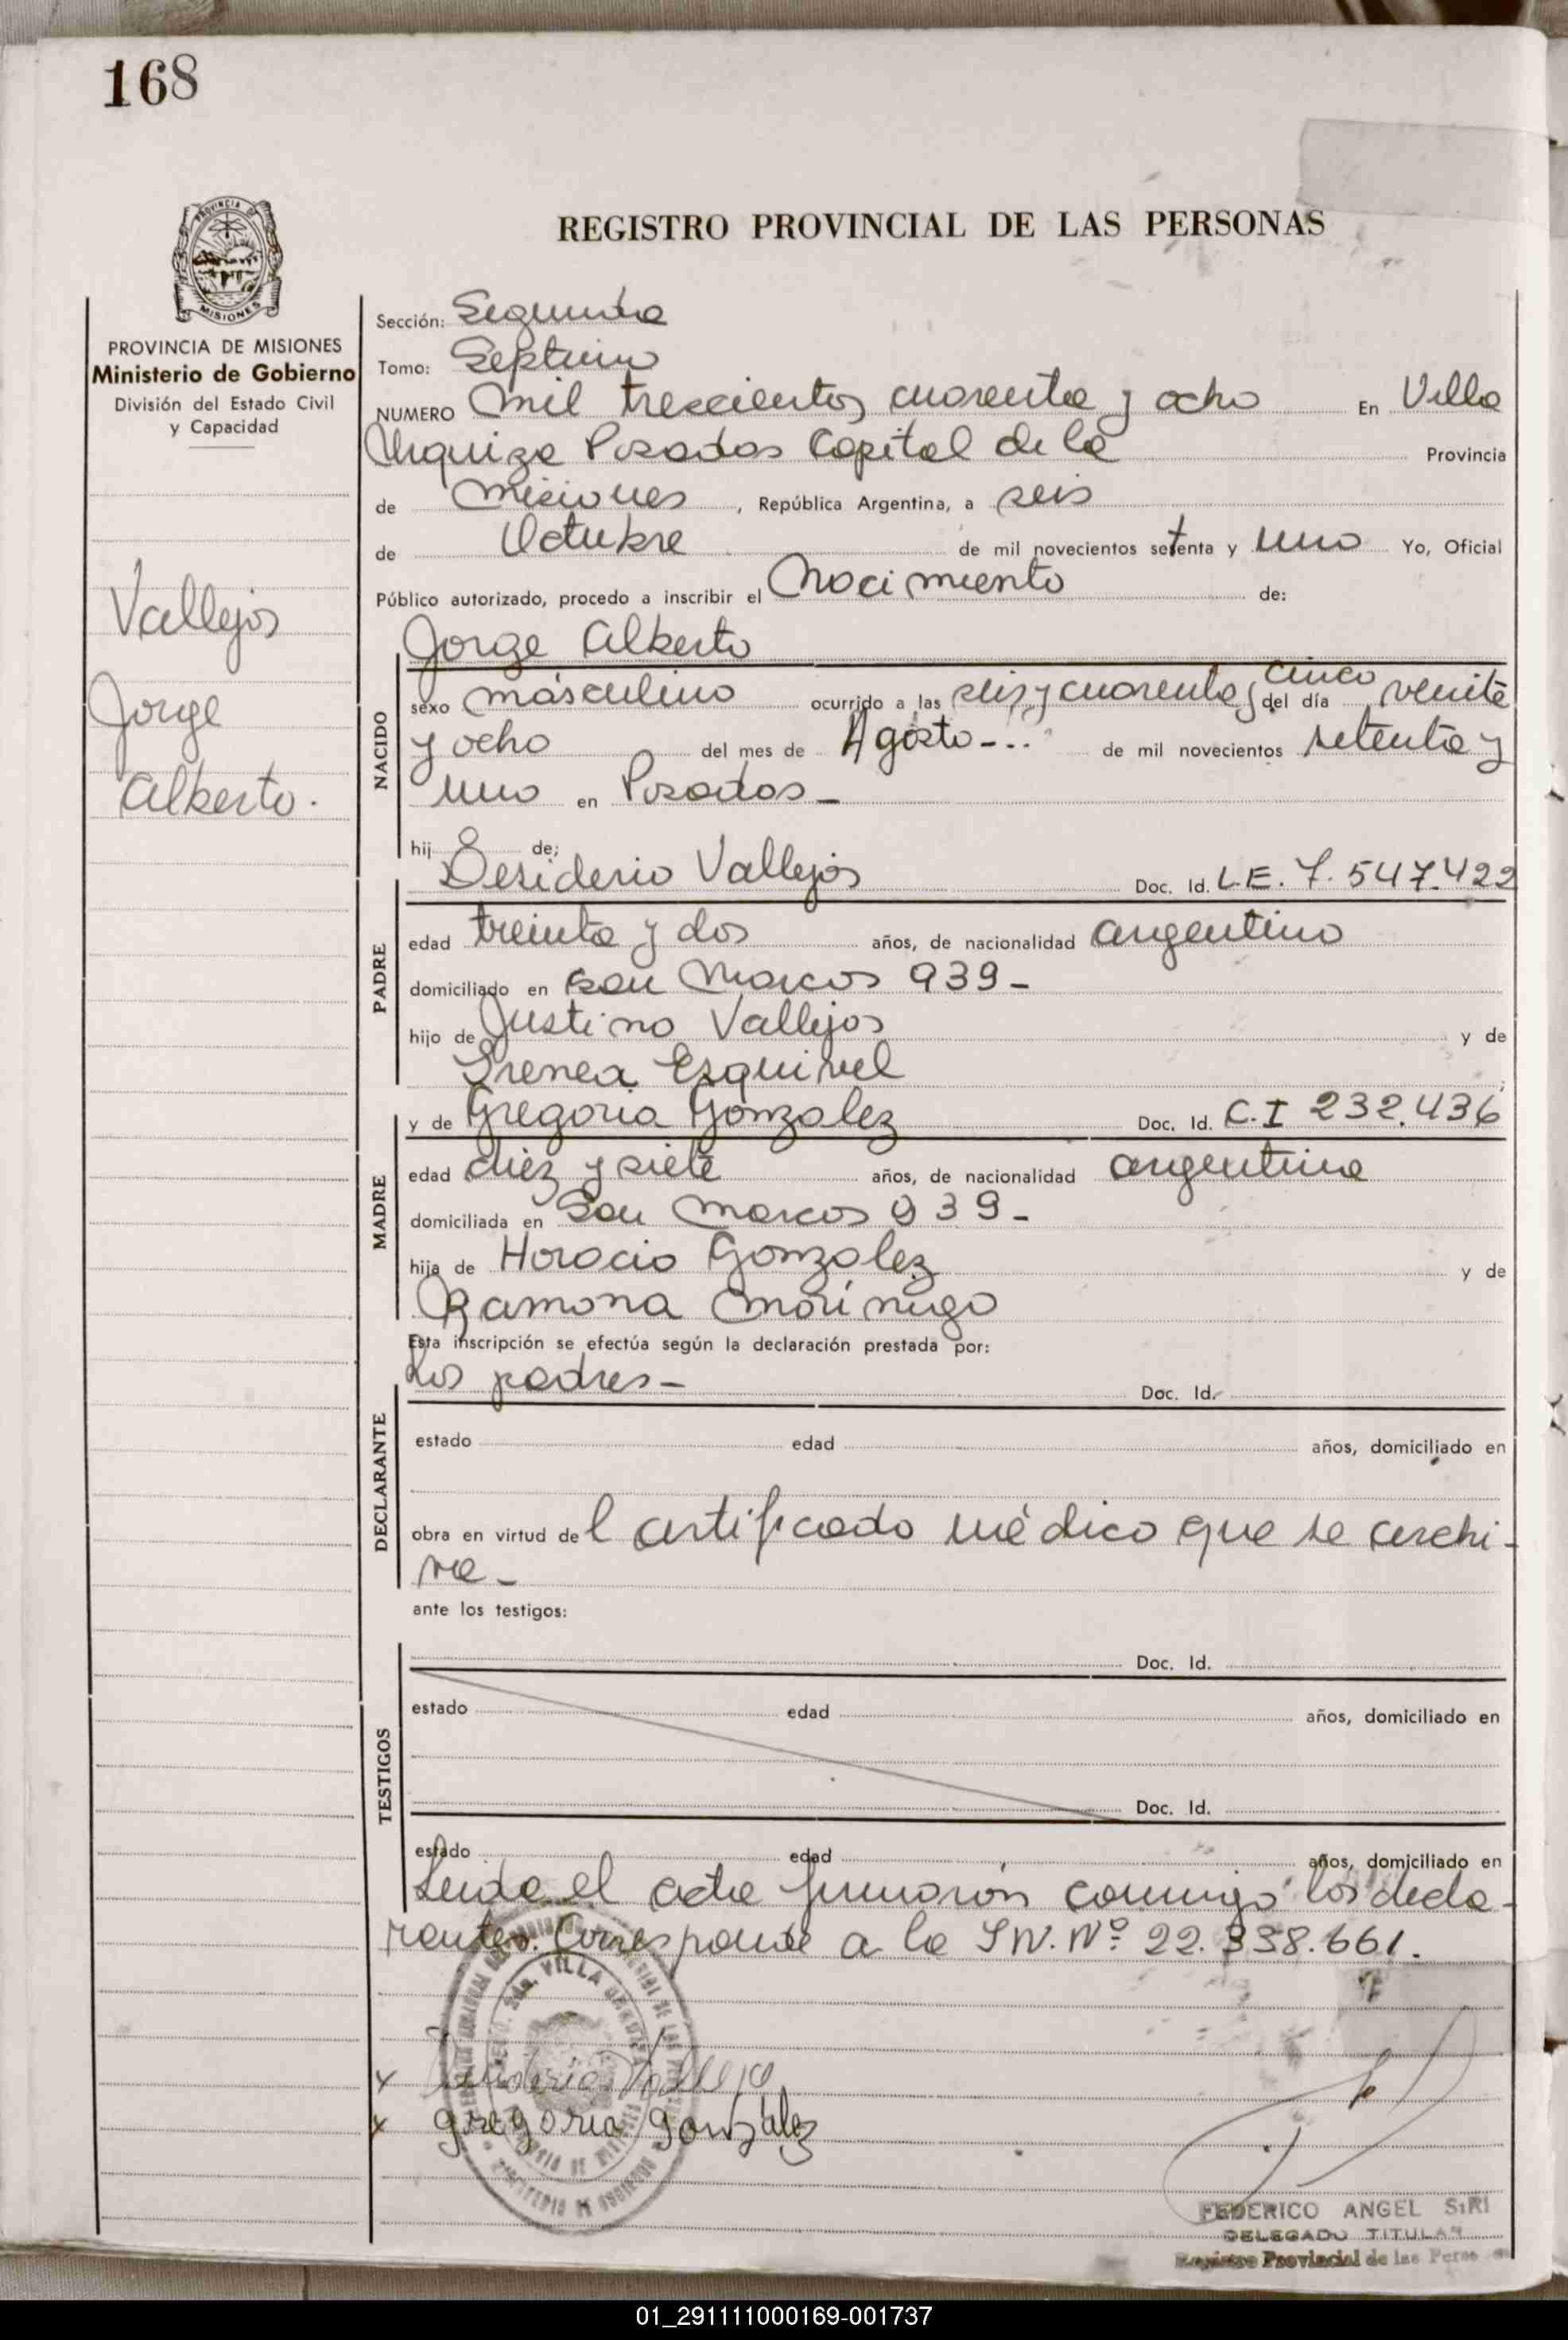 168
REGISTRO PROVINCIAL DE LAS PERSONAS
PROVINCIA DE MISIONES
Ministerio de Gobierno
División del Estado Civil
y Capacidad
Vallejos
Jorge
Alberto.
Sección: Segunda
Tomo: Septimo
NUMERO Mil trescientos cuarenta y ocho En Villa
Urquiza Posadas Capital de la Provincia
de Misiones, República Argentina, a seis
de Octubre de mil novecientos setenta y uno Yo, Oficial
Público autorizado, procedo a inscribir el Nacimiento de:
Jorge Alberto
NACIDO
sexo masculino ocurrido a las seis y cuarenta y cinco del día veinte
y ocho del mes de Agosto-.. de mil novecientos setenta y
uno en Posadas-
hijo de;
Desiderio Vallejos Doc. Id. L.E. 7.547.422
PADRE
edad treinta y dos años, de nacionalidad argentino
domiciliado en San Marcos 939-
hijo de Justino Vallejos y de
Irenea Esquivel
y de Gregoria Gonzalez Doc. Id. C.I 232.436
MADRE
edad diez y siete años, de nacionalidad argentina
domiciliada en San Marcos 939-
hija de Horacio Gonzalez y de
Ramona Morinigo
Esta inscripción se efectúa según la declaración prestada por:
Los padres- Doc. Id.
DECLARANTE
estado edad años, domiciliado en
obra en virtud del certificado médico que se archi-
va-
ante los testigos:
Doc. Id.
TESTIGOS
estado edad años, domiciliado en
Doc. Id.
estado edad años, domiciliado en
Leida el acta firmaron conmigo los decla-
rantes. Corresponde a la IN. Nº 22.338.661.
x Desiderio Vallejo
x gregoria gonzález
FEDERICO ANGEL SIRI
DELEGADO TITULAR
Registro Provincial de las Perso
01_291111000169-001737